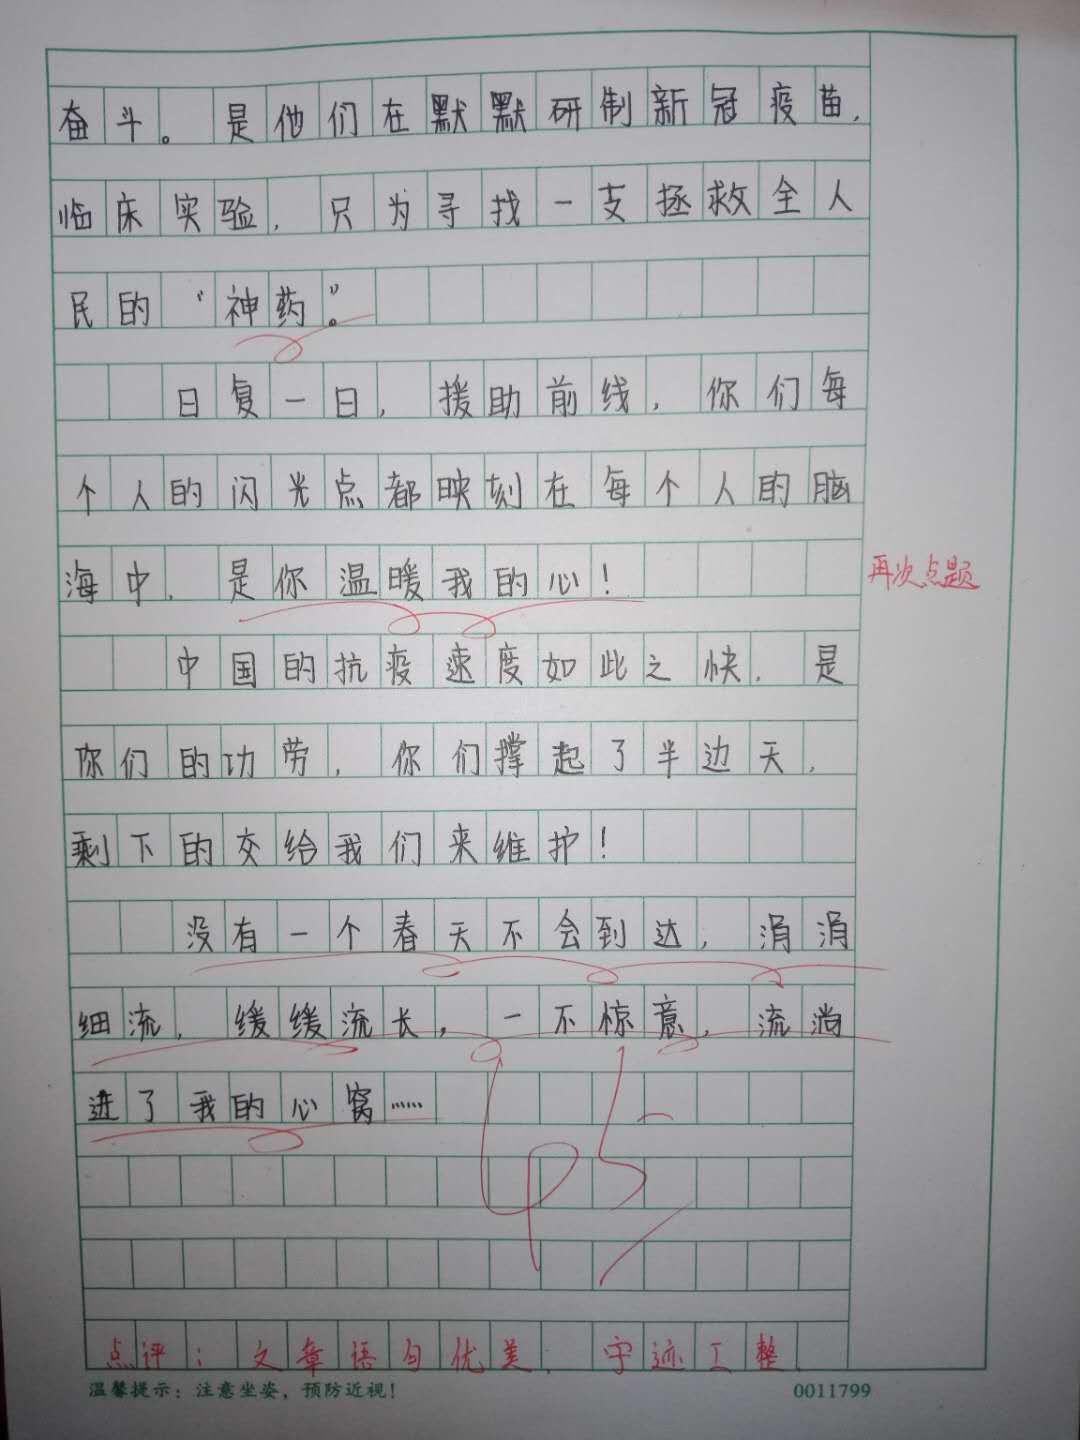 奋斗。是他们在默默研制新冠疫苗，
临床实验，只为寻找一支拯救全人
民的“神药”。
日复一日，援助前线，你们每
个人的闪光点都映刻在每个人的脑
海中，是你温暖我的心！
再次点题
中国的抗疫速度如此之快，是
你们的功劳，你们撑起了半边天，
剩下的交给我们来维护！
没有一个春天不会到达，涓涓
细流，缓缓流长，一不惊意，流淌
进了我的心窝……
45
点评：文章语句优美，字迹工整
温馨提示：注意坐姿，预防近视！
0011799